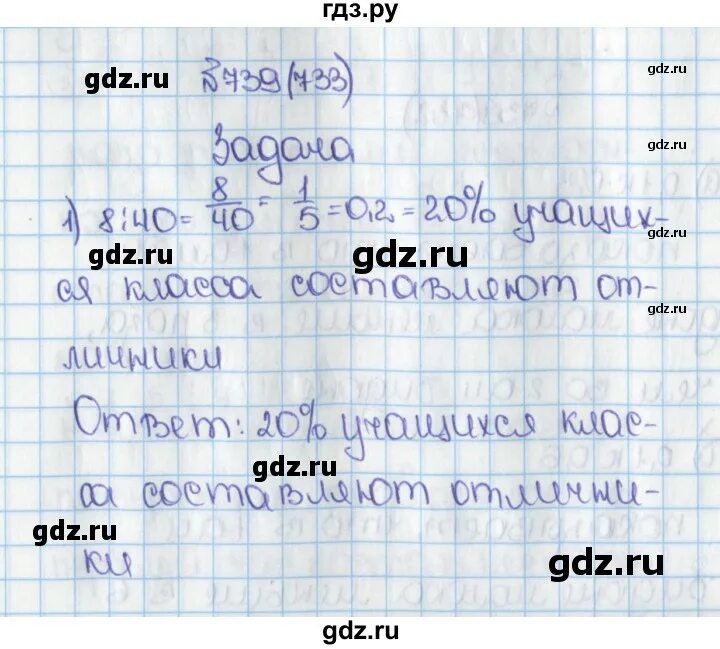 гдз.ру
gdz.ru
№739(733)
gdz.ru
gdz.ru
Задача
1) 8:40= 8/40 = 1/5 =0,2=20% учащих-
gdz.ru
gdz.ru
ся класса составляют от-
gdz.ru
личники
Ответ: 20% учащихся клас-
gdz.ru
gdz.ru
са составляют отлични-
gdz.ru
ки
gdz.ru
gdz.ru